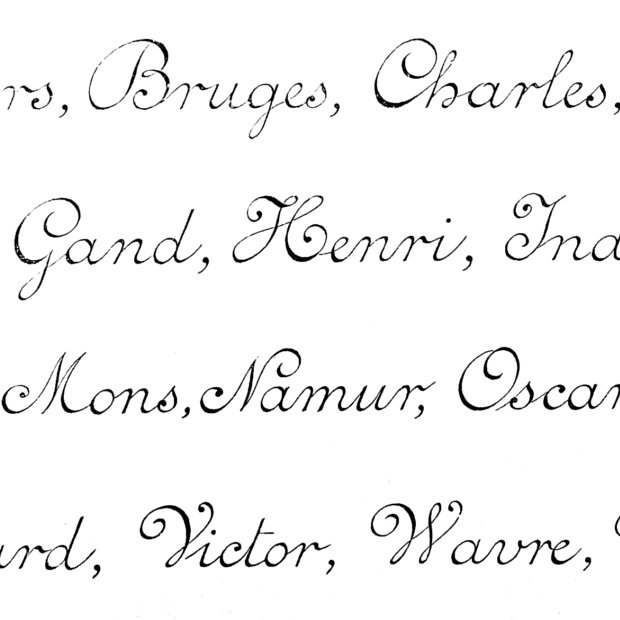 rs, Bruges, Charles,
Gand, Henri, Ind
Mons, Namur, Oscar
ard, Victor, Wavre,